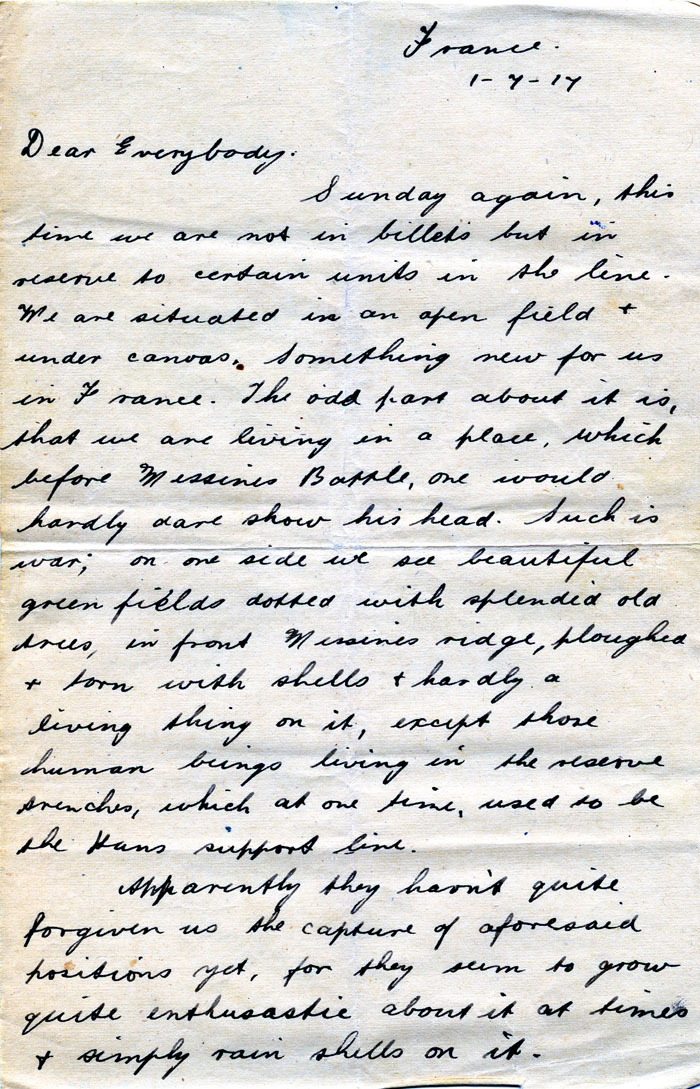 France.
1-7-17
Dear Everybody.
Sunday again, this
time we are not in billets but in
reserve to certain units in the line.
We are situated in an open field +
under canvas. Something new for us
in France. The odd part about it is,
that we are living in a place, which
before Messines Battle, one would
hardly dare show his head. Such is
war; on one side we see beautiful
green fields dotted with splendid old
trees, in front Messines ridge, ploughed
+ torn with shells + hardly a
living thing on it, except those
human beings living in the reserve
trenches, which at one time, used to be
the Huns support line.
Apparently they havn't quite
forgiven us the capture of aforesaid
positions yet, for they seem to grow
quite enthusastic about it at times
+ simply rain shells on it.